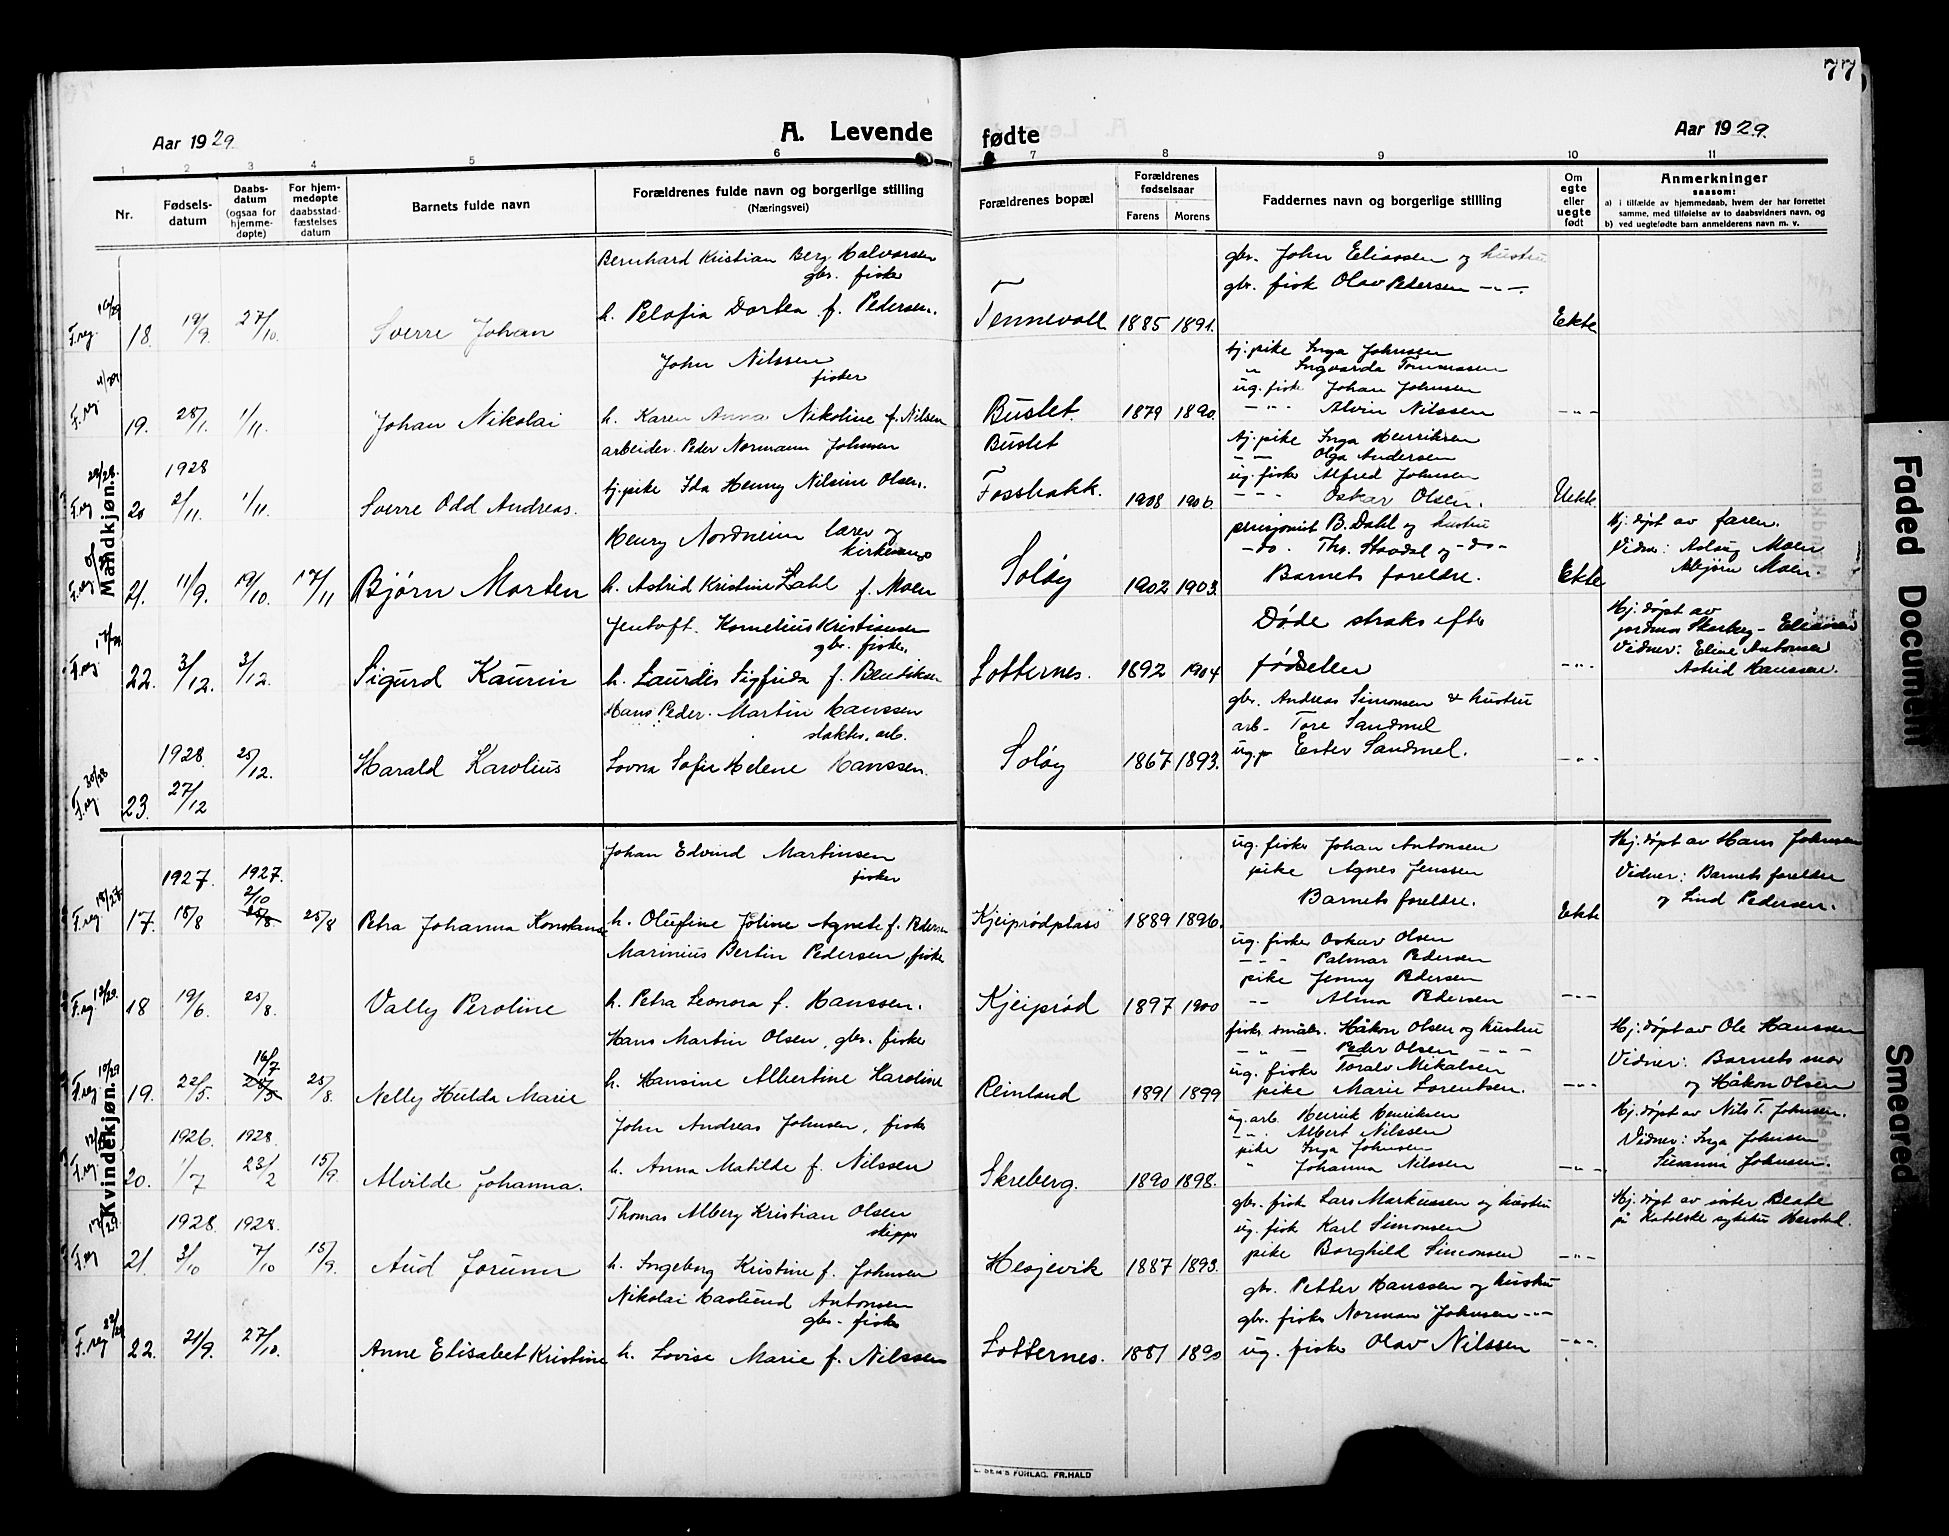 77
Aar 1929.
A. Levende
fødte
Aar 1929.
1 2 3 4 5 6 7 8 9 10 11
Nr.
Fødsels-
datum
Daabs-
datum
(ogsaa for
hjemme-
døpte)
For hjem-
medøpte
daabsstad-
fæstelses
datum
Barnets fulde navn
Forældrenes fulde navn og borgerlige stilling
(Næringsvei)
Forældrenes bopæl
Forældrenes
fødselsaar
Farens
Morens
Faddernes navn og borgerlige stilling
Om
egte
eller
uegte
født
Anmerkninger
saasom:
a) i tilfælde av hjemmedaab, hvem der har forrettet
samme, med tilføielse av to daabsvidners navn, og
b) ved uegtefødte barn anmelderens navn m. v.
Mandkjøn.
Bernhard Kristian Berg Halvorsen
gbr. fisker
gbr. John Eliassen og hustru
gbr. fisk Olav Petersen -"-.
F.reg. 18. 19/9. 27/10. Sverre Johan
h. Pelofia Dortea f. Pedersen.
Tennevoll 1885 1891. Ekte
John Nilssen
fisker
tj. pike Inga Johnsen
" Ingvarda Tommassen
ug. fisk. Johan Johnsen
-"- Alvin Nilssen
F.reg. 19. 28/1. 1/11. Johan Nikolai
h. Karen Anna Nikoline f. Nilsen
Buslet 1879 1890. -"-
arbeider. Peder Normann Johnsen
Buslet
tj. pike Inga Henriksen
-"- Olga Andersen
ug. fisker Alfred Johnsen
-"- Oskar Olsen.
F.reg 23/28. 20 1928 2/11. 1/11. Sverre Odd Andreas.
tj. pike Ida Henny Nilsine Olsen.
Fossbakk. 1908 1906. Uekte
Henry Nordheim lærer og
kirkesanger
pensjonist B. Dahl og hustru
-do. Ths. Hovdal og -do-
Barnets foreldre.
Hj. døpt av faren.
Vidner: Aslaug Moen
Asbjørn Moen.
F.reg 21. 11/9. 19/10. 17/11 Bjørn Morten
h. Astrid Kristine Zahl f. Moen
Soløy 1902 1903. Ekte
Jentoft. Kornelius Kristiansen
gbr. fisker.
Døde straks efter
fødselen
Hj. døpt av
jordmor Skarberg - Eliassen
Vidner: Eline Antonsen
Astrid Hanssen.
F.reg 22. 3/12. 3/12. Sigurd Kaurin
h. Laurdis Sigfrida f. Bendiksen
Sotternes. 1892 1904 -"-
Hans Peder. Martin Hanssen
slakter, arb.
gbr. Andreas Simonsen & hustru
arb- Tore Sandmel
ug p Ester Sandmel.
F.reg. 30/28 23. 1928. 27/12 25/12. Harald Karolius
Lovna Sofie Helene Hanssen.
Soløy 1867 1893. -"-
Kvindekjøn.
Johan Edvind Martinsen
fisker
ug. fisker Johan Antonsen
pike Agnes Jenssen
Barnets foreldre.
Hj. døpt av Hans Johnsen
Vidner: Barnets foreldre
og Lind Pedersen.
F.reg. 18/27. 17. 1927. 18/8 1927. 2/10 25/8. 25/8 Petra Johanna Konstanse
h. Olufine Joline Agnete f. Pedersen
Kjeiprødplass 1889 1896. Ekte
Marinius Bertin Pedersen, fisker
ug. fisker Oskar Olsen
-"- Palmar Pedersen
pike Jenny Pedersen
-"- Alma Pedersen
F.reg. 12/29. 18 19/6. 25/8. Vally Peroline
h. Petra Leonora f. Hanssen.
Kjeiprød 1897 1900 -"-
Hans Martin Olsen, gbr. fisker
fisk. småbr. Håkon Olsen og hustru
-"- Peder Olsen -"-
ug. fisker Toralv Mikalsen
pike Marie Lorentsen.
Hj. døpt av Ole Hanssen
Vidner: Barnets mor
og Håkon Olsen
F.reg. 10/29 19. 22/5. 16/7 25/8. Nelly Hulda Marie
h. Hansine Albertine Karoline
Reinland 1891 1899 -"-
John Andreas Johnsen, fisker
ug. arb. Henrik Henriksen
-"- Albert Nilssen
pike Inga Johnsen
" Johanna Nilssen
Hj. døpt av Nils T. Johnsen.
Vidner: Inga Johnsen
Susanna Johnsen.
F.reg 20. 1926. 1/7 1928. 23/2 15/9. Alvilde Johanna.
h. Anna Matilde f. Nilssen
Skreberg. 1890 1898. -"-
Thomas Alberg Kristian Olsen
skipper
gbr. fisk Lars Markussen og hustru
ug. fisk Karl Simonsen
pike Borghild Simonsen
Hj. døpt av søster Beate
på Katolske sykehus Harstad.
F.reg 21. 1928. 3/10 1928. 7/10 15/9. Aud Jorunn
h. Ingeborg Kristine f. Johnsen
Hesjevik 1887 1893. -"-
Nikolai Haslund Antonsen
gbr. fisker
gbr. Petter Hanssen og hustru
gbr. fisker Norman Johnsen -"-
ug. fisker Olav Nilssen
F.reg 22/29 22. 21/9. 27/10. Anne Elisabet Kristine
h. Lovise Marie f. Nilssen
Sotternes. 1881 1890 -"-
SEM'S FORLAG. FR. HALD
Faded Document
Smeared